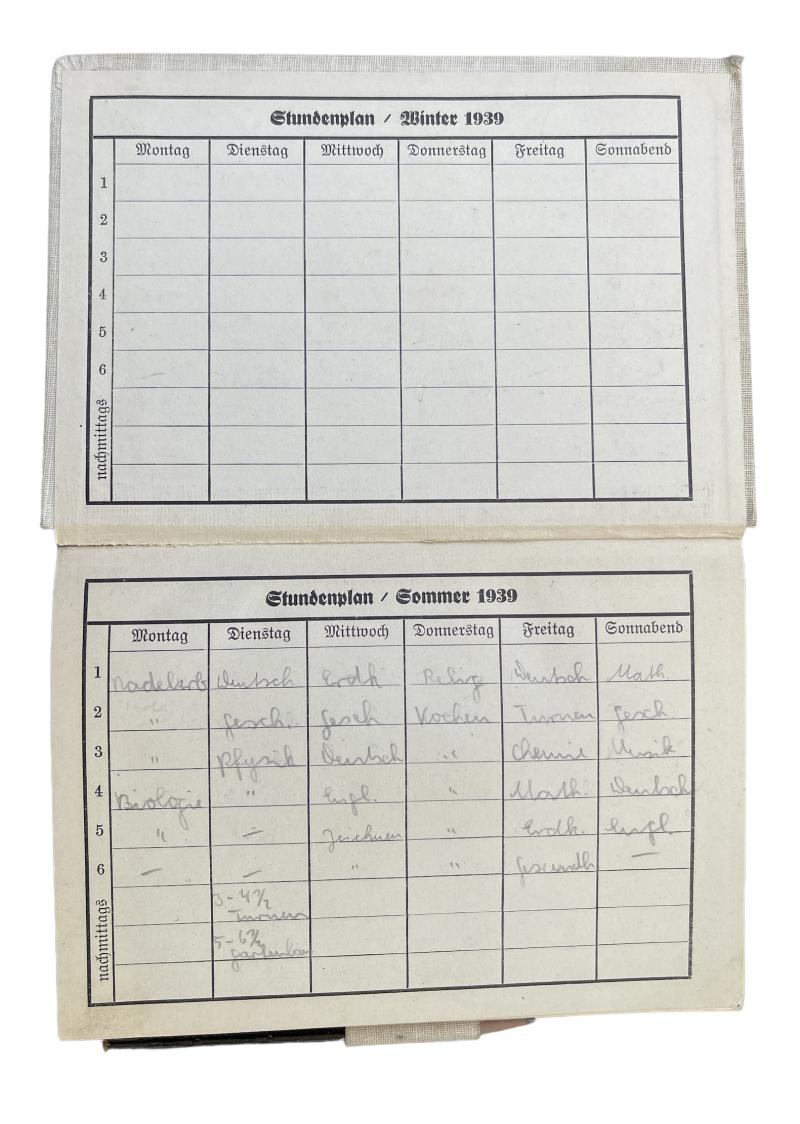 Stundenplan / Winter 1939
Montag Dienstag Mittwoch Donnerstag Freitag Sonnabend
1
2
3
4
5
6
nachmittags
Stundenplan / Sommer 1939
Montag Dienstag Mittwoch Donnerstag Freitag Sonnabend
1 Nadelarb Deutsch Erdk Relig Deutsch Math.
2 " Gesch. Gesch Kochen Turnen Gesch.
3 " Physik Deutsch " Chemie Musik
4 Biologie " Engl. " Math. Deutsch
5 " — Zeichnen " Erdk. Engl.
6 — — " " Gesundh —
nachmittags
3-4½
Turnen
5-6½
Gartenbau